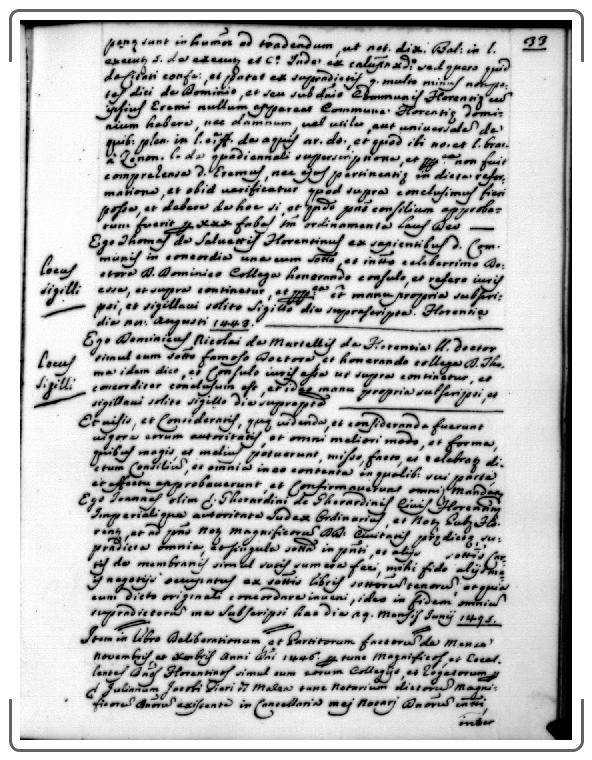 33
penę sunt in humor ad tradendum, ut not. dix. Bal: in l.
executs. de execut. et
de Citati et patet ex supradictis q. multo minus non po-
test dici de Dominio, et seu subdito Communis Florentię cu
ipsius Eremi nullum appareat Commune Florentię domi-
nium habere, nec damnum, vel utile, aut universale de
quib. plen. in l. de aquis et quod ibi no. et l.
à Zenon. l. de quadriennali prescriptione, et non fuit
comprehensa d. Eremus, nec ejus pertinentię in dicta refor-
matione, et obid verificatur quod supra conclusimus fieri
posse, et debere de hoc si, et qndo pns consilium approba-
tum fuerit p xxx fabas in ordinamenta laus Deo
Ego Thomas de Salvettis Florentinus ex sapientibus d. Com-
munis in concordia una cum sotto, et infto celeberrimo Do-
ctore D. Dominico Collega honorando consulo, et refero iuris
esse, ut supra continetur, et manu propria subscri-
psi, et sigillavi solito Sigillo die suprascripta. Florentię
die nov. Augusti 1443.
Locus
sigilli
Ego Dominicus Nicolai de Martellis de Florentia ll. doctor
simul cum sotto famoso Doctore, et honorando collega D. Tho-
ma idem dico, et Consulo iuris esse ut supra continetur, et
concorditer conclusum est, et ideo manu propria subscripsi, et
sigillavi solito sigillo die supraptd
Locus
Sigilli
Et visis, et Consideratis, quę videnda, et consideranda fuerunt
vigore eorum autoritatis, et omni meliori modo, et forma,
quibus magis, et melius potuerunt, misso, facto, et celebrato di-
ctum Consilium, et omnia in eo contenta in qualib: sui parte,
et effectu approbaverunt, et Confirmaverunt omni Mandan
Ego Ioannes olim d. Gherardini de Gherardinis Civis Florentinus
Imperialique autoritate Iudex Ordinarius, et Not. Pub. Flo-
rent. et ad pns Not. Magnificorum DD. Civitatis prędictę su-
pradicta omnia, et singula sotta in pnti, et aliis sottis car-
tis de membranis simul sutis sumere feci, mihi fido aliis me-
is negotiis occupatus ex sottis libris sottorum tenore, et quia
cum dicto originali concordare inveni, ideo in fidem omnium
supradictorum me Subscripsi hac die 29. Mensis Iunij 1495.
Item in libro Deliberationum et Partitorum factorum de Mense
Novembris et Xmbris Anni Dni 1446. p tunc Magnificos, et Excel-
lentes Dnos Florentinos simul cum eorum Collegijs, et Rogatorum p
d Julianum Jacobi Pieri de Medea tunc Notarium dictorum Magni-
ficorum Dnorum existente in Cancellaria mej Notarj Dnorum infti,
inter